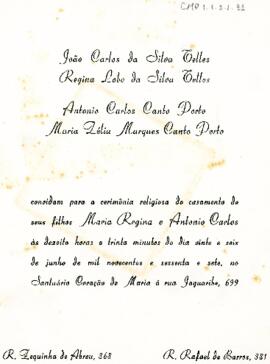 CMP 1.1.2.1. 91
João Carlos da Silva Telles
Regina Lobo da Silva Telles
Antonio Carlos Canto Porto
Maria Zélia Marques Canto Porto
convidam para a cerimônia religiosa do casamento de
seus filhos Maria Regina e Antonio Carlos
às dezoito horas e trinta minutos do dia vinte e seis
de junho de mil novecentos e sessenta e sete, no
Santuário Coração de Maria à rua Jaguaribe, 699
R. Zequinha de Abreu, 368
R. Rafael de Barros, 381